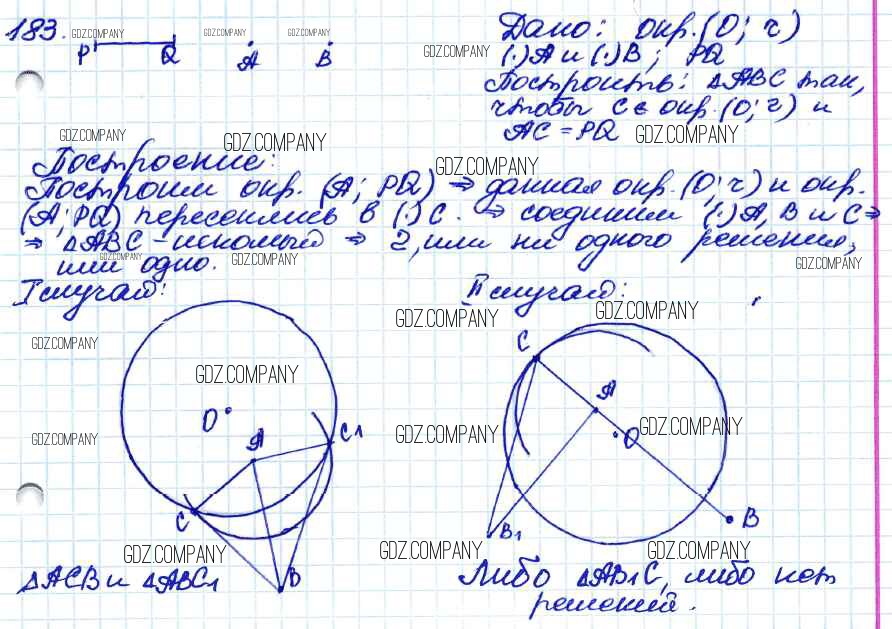 183. GDZ.COMPANY GDZ.COMPANY GDZ.COMPANY
P Q A B
Дано: окр.(O; r)
GDZ.COMPANY (·)A и (·)B; PQ
Построить: △ABC так,
чтобы C ∈ окр.(O; r) и
AC = PQ GDZ.COMPANY
GDZ.COMPANY GDZ.COMPANY
Построение: GDZ.COMPANY
Построим окр. (A; PQ) ⇒ данная окр.(O; r) и окр.
(A; PQ) пересеклись в (·)C. ⇒ соединим (·)A, B и C ⇒
⇒ △ABC - искомый ⇒ 2, или ни одного решения,
GDZ.COMPANY
или одно. GDZ.COMPANY GDZ.COMPANY
I случай: II случай:
GDZ.COMPANY GDZ.COMPANY
GDZ.COMPANY C
GDZ.COMPANY
O A A
GDZ.COMPANY C1 GDZ.COMPANY O GDZ.COMPANY
C B1 B
GDZ.COMPANY GDZ.COMPANY GDZ.COMPANY
△ACB и △ABC1 B Либо △AB1C, либо нет
решений.